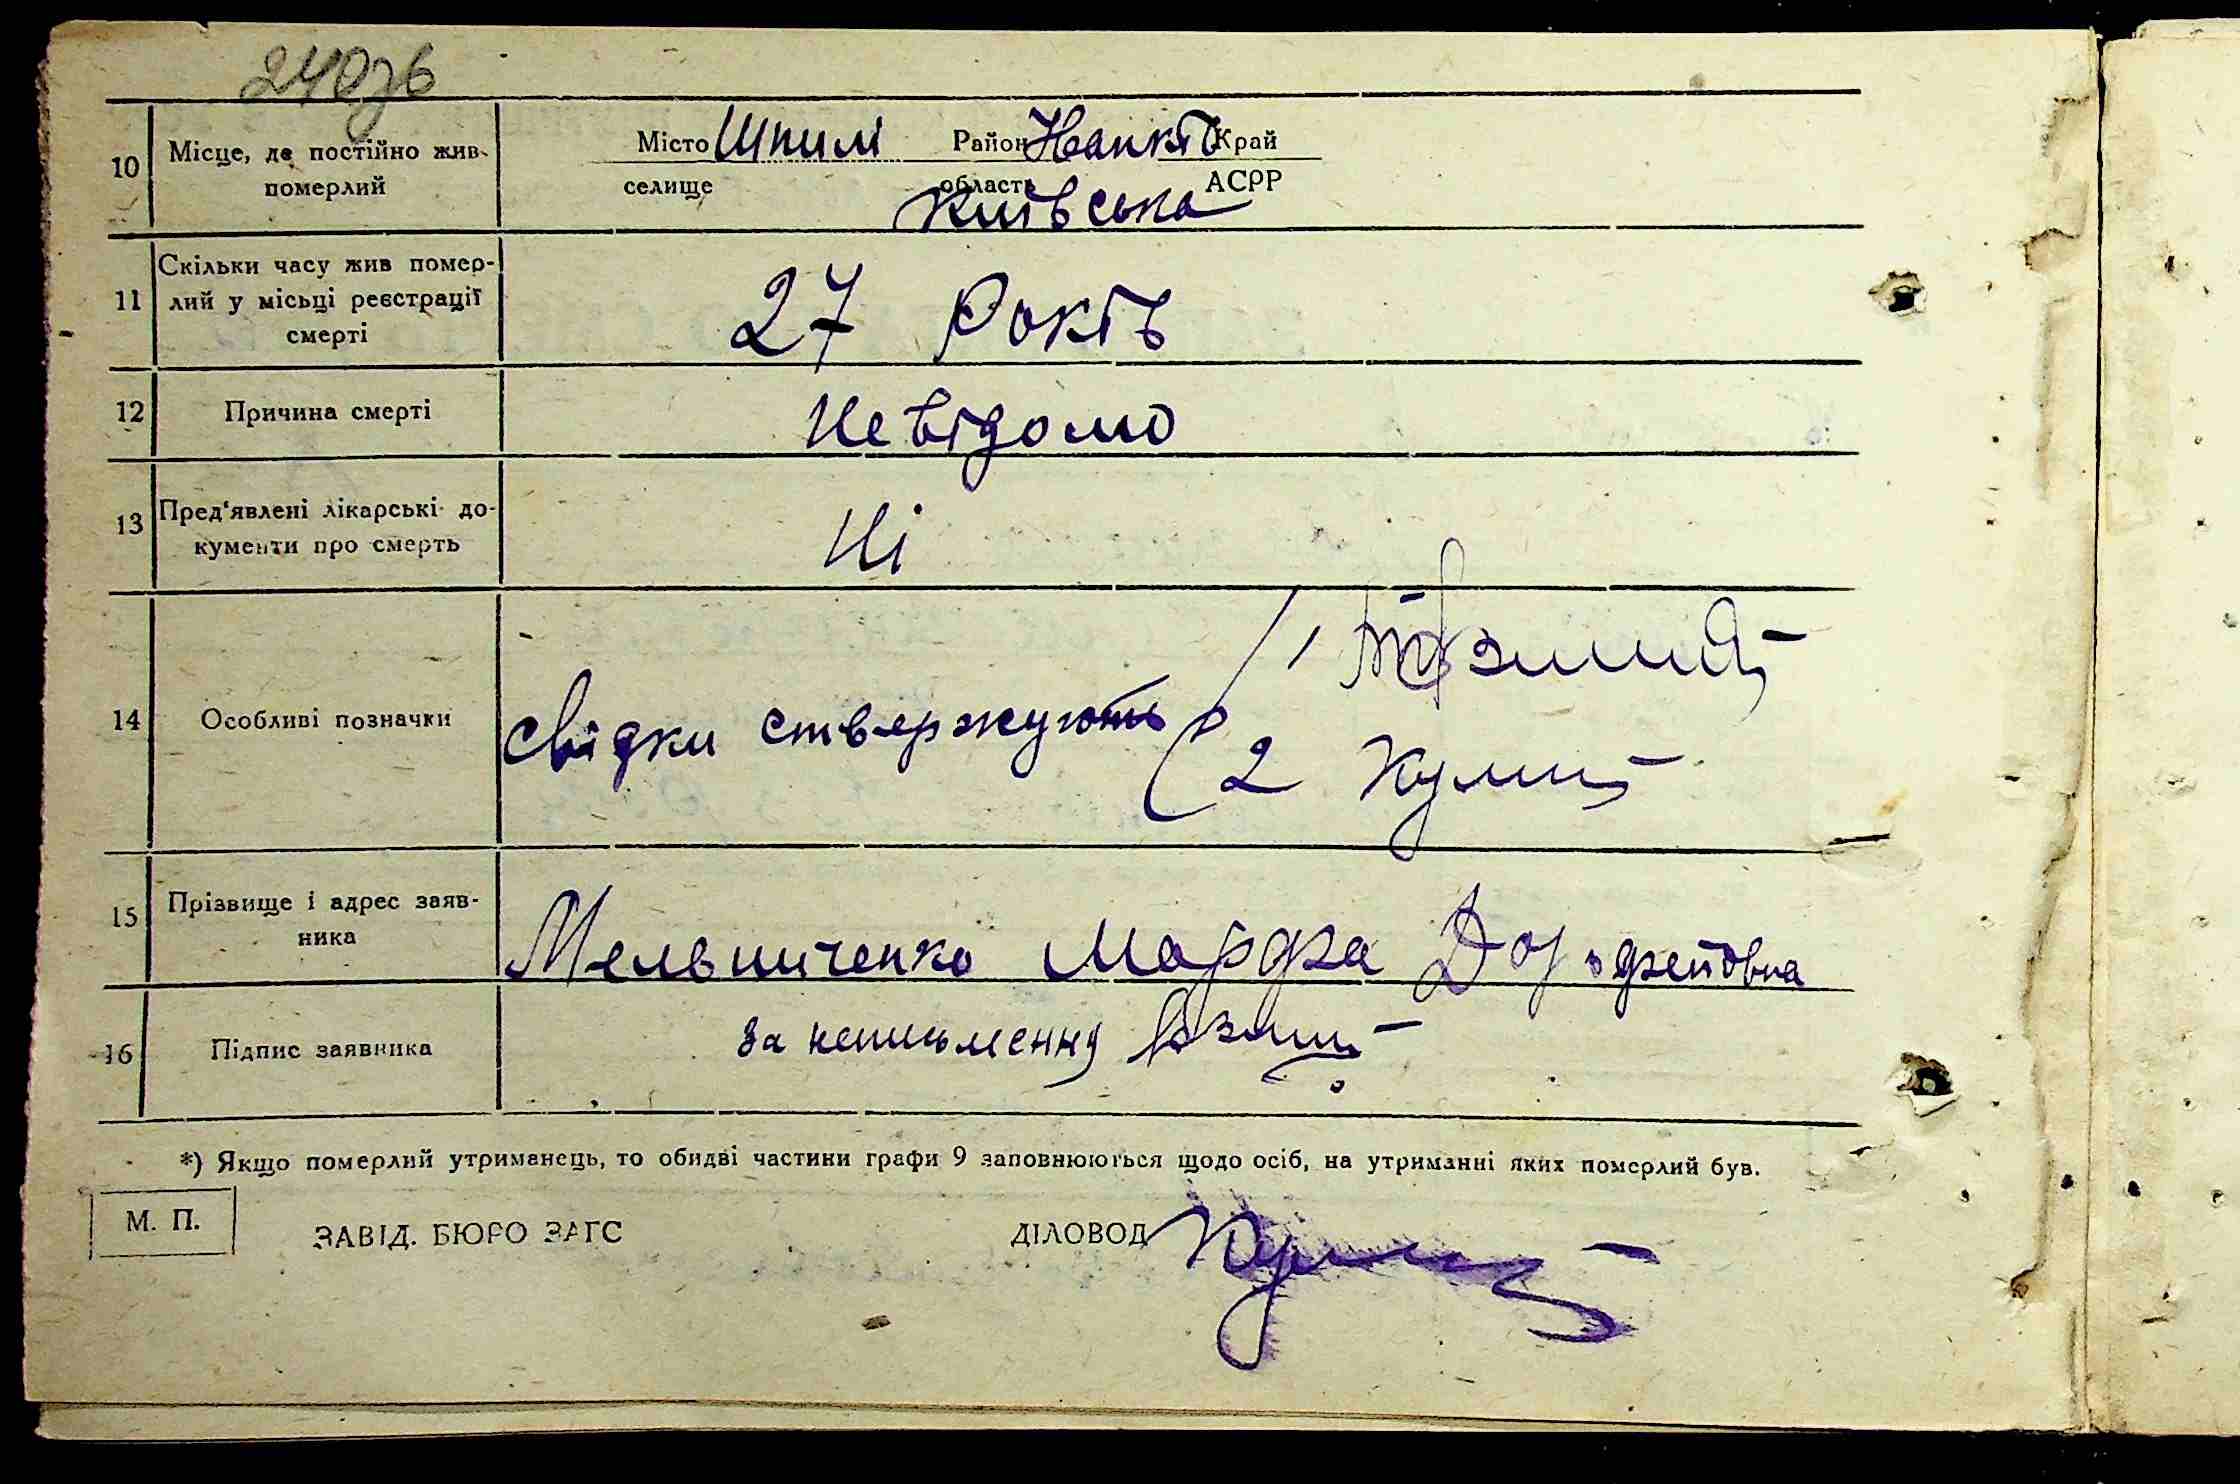 240зв
10 Місце, де постійно жив померлий
Місто Шпилі Район Иванків Край
селище область АСРР
Київська
11 Скільки часу жив помер-
лий у місьці реєстрації
смерті
27 Років
12 Причина смерті Невідомо
13 Пред'явлені лікарські до-
кументи про смерть
Ні
14 Особливі позначки свідки ствержують
1
2 Кулиц
15 Прізвище і адрес заяв-
ника
Мельниченко Марфа
16 Підпис заявника за неписьменну
*) Якщо померлий утриманець, то обидві частини графи 9 заповнюються щодо осіб, на утриманні яких померлий був.
М. П. ЗАВІД. БЮРО ЗАГС ДІЛОВОД